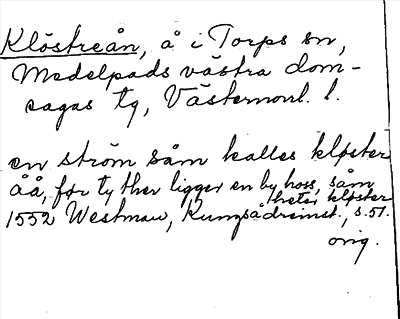 Klöstreån, å i Torps sn,
Medelpads västra dom-
sagas tg, Västernorrl. l.
en ström såm kalles kløster
åå, før ty ther ligger en by hoss, såm
heter kløster
1552 Westman, Kungsådreinst., s. 51.
orig.